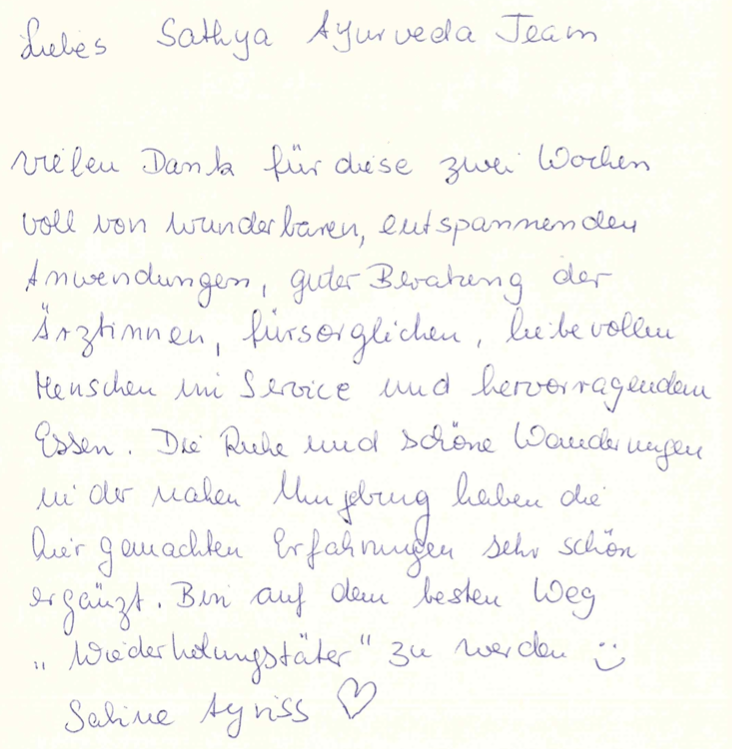 Liebes Sathya Ayurveda Team
vielen Dank für diese zwei Wochen
voll von wunderbaren, entspannenden
Anwendungen, guter Beratung der
Ärztinnen, fürsorglichen, liebevollen
Menschen im Service und hervorragendem
Essen. Die Ruhe und schöne Wanderungen
in der nahen Umgebung haben die
hier gemachten Erfahrungen sehr schön
ergänzt. Bin auf dem besten Weg
„Wiederholungstäter" zu werden
Sabine